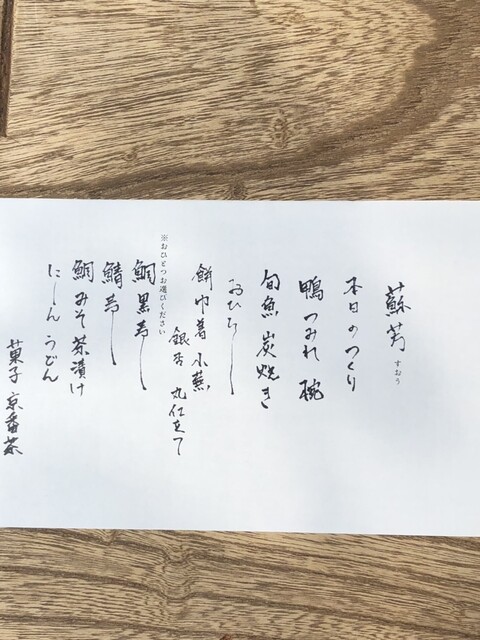 蘇芳 すおう
本日のつくり
鴨つみれ 椀
旬魚 炭焼き
おひたし
餅巾着 小蕪
銀杏 丸仕立て
※おひとつお選びください
鯛黒寿し
鯖寿し
鯛みそ茶漬け
にしんうどん
菓子 京番茶